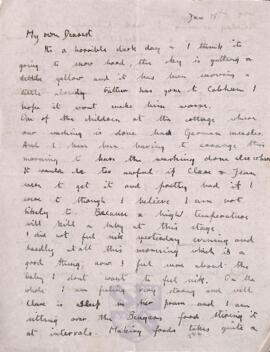 Jan 15
My own Dearest
It's a horrible dark day & I think it
going to snow hard, the sky is getting a
little yellow and it has been snowing a
little already. Father has gone to Cobham I
hope it wont make him worse.
One of the children at the cottage where
our washing is done had German measles.
And I have been having to arrange this
morning to have the washing done elsewhere
It would be too awful if Clare & Jean
were to get it and pretty bad if I
were to though I believe I am not
likely to. Because a high temperature
will kill a baby at this stage.
I did not feel sick yesterday evening and
hardly at all this morning which is a
good thing, now I feel more about the
baby I dont want to feel sick. On the
whole I am feeling very strong and well
Clare is asleep in her pram and I am
sitting over the Bengers food stirring it
at intervals. Making foods takes quite a